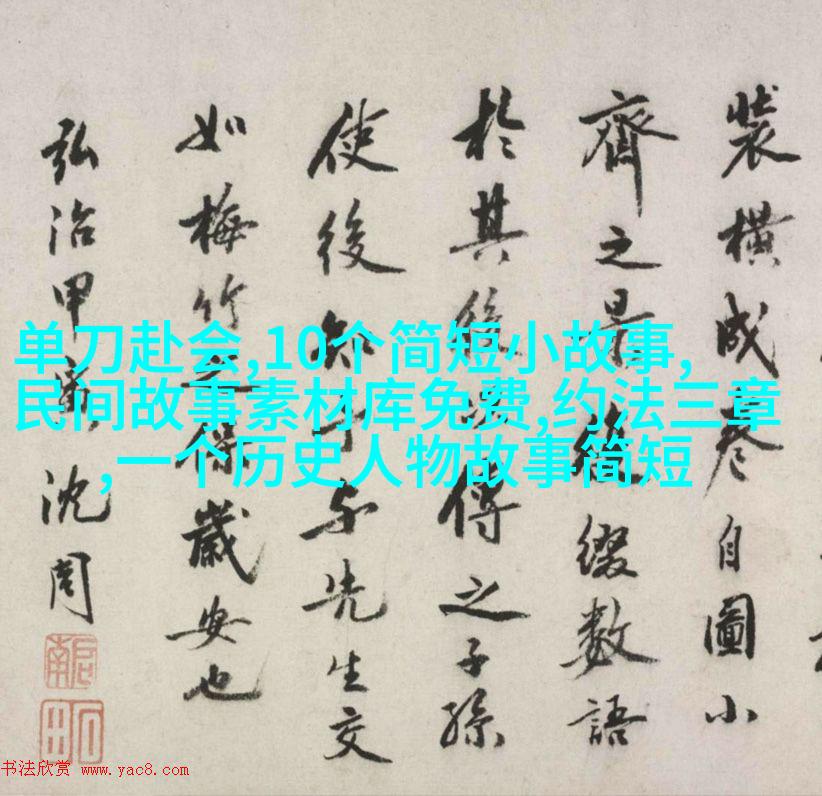 单刀赴会,10个简短小故事,
民间故事素材库免费,约法三章
,一个历史人物故事简短
裝橫成卷自圖小
齊之景後綴數語
於其後以傳之子孫
使後知予与先生交
如梅竹之保歲安也
弘治甲寅沈周
书法欣赏 www.yac8.com